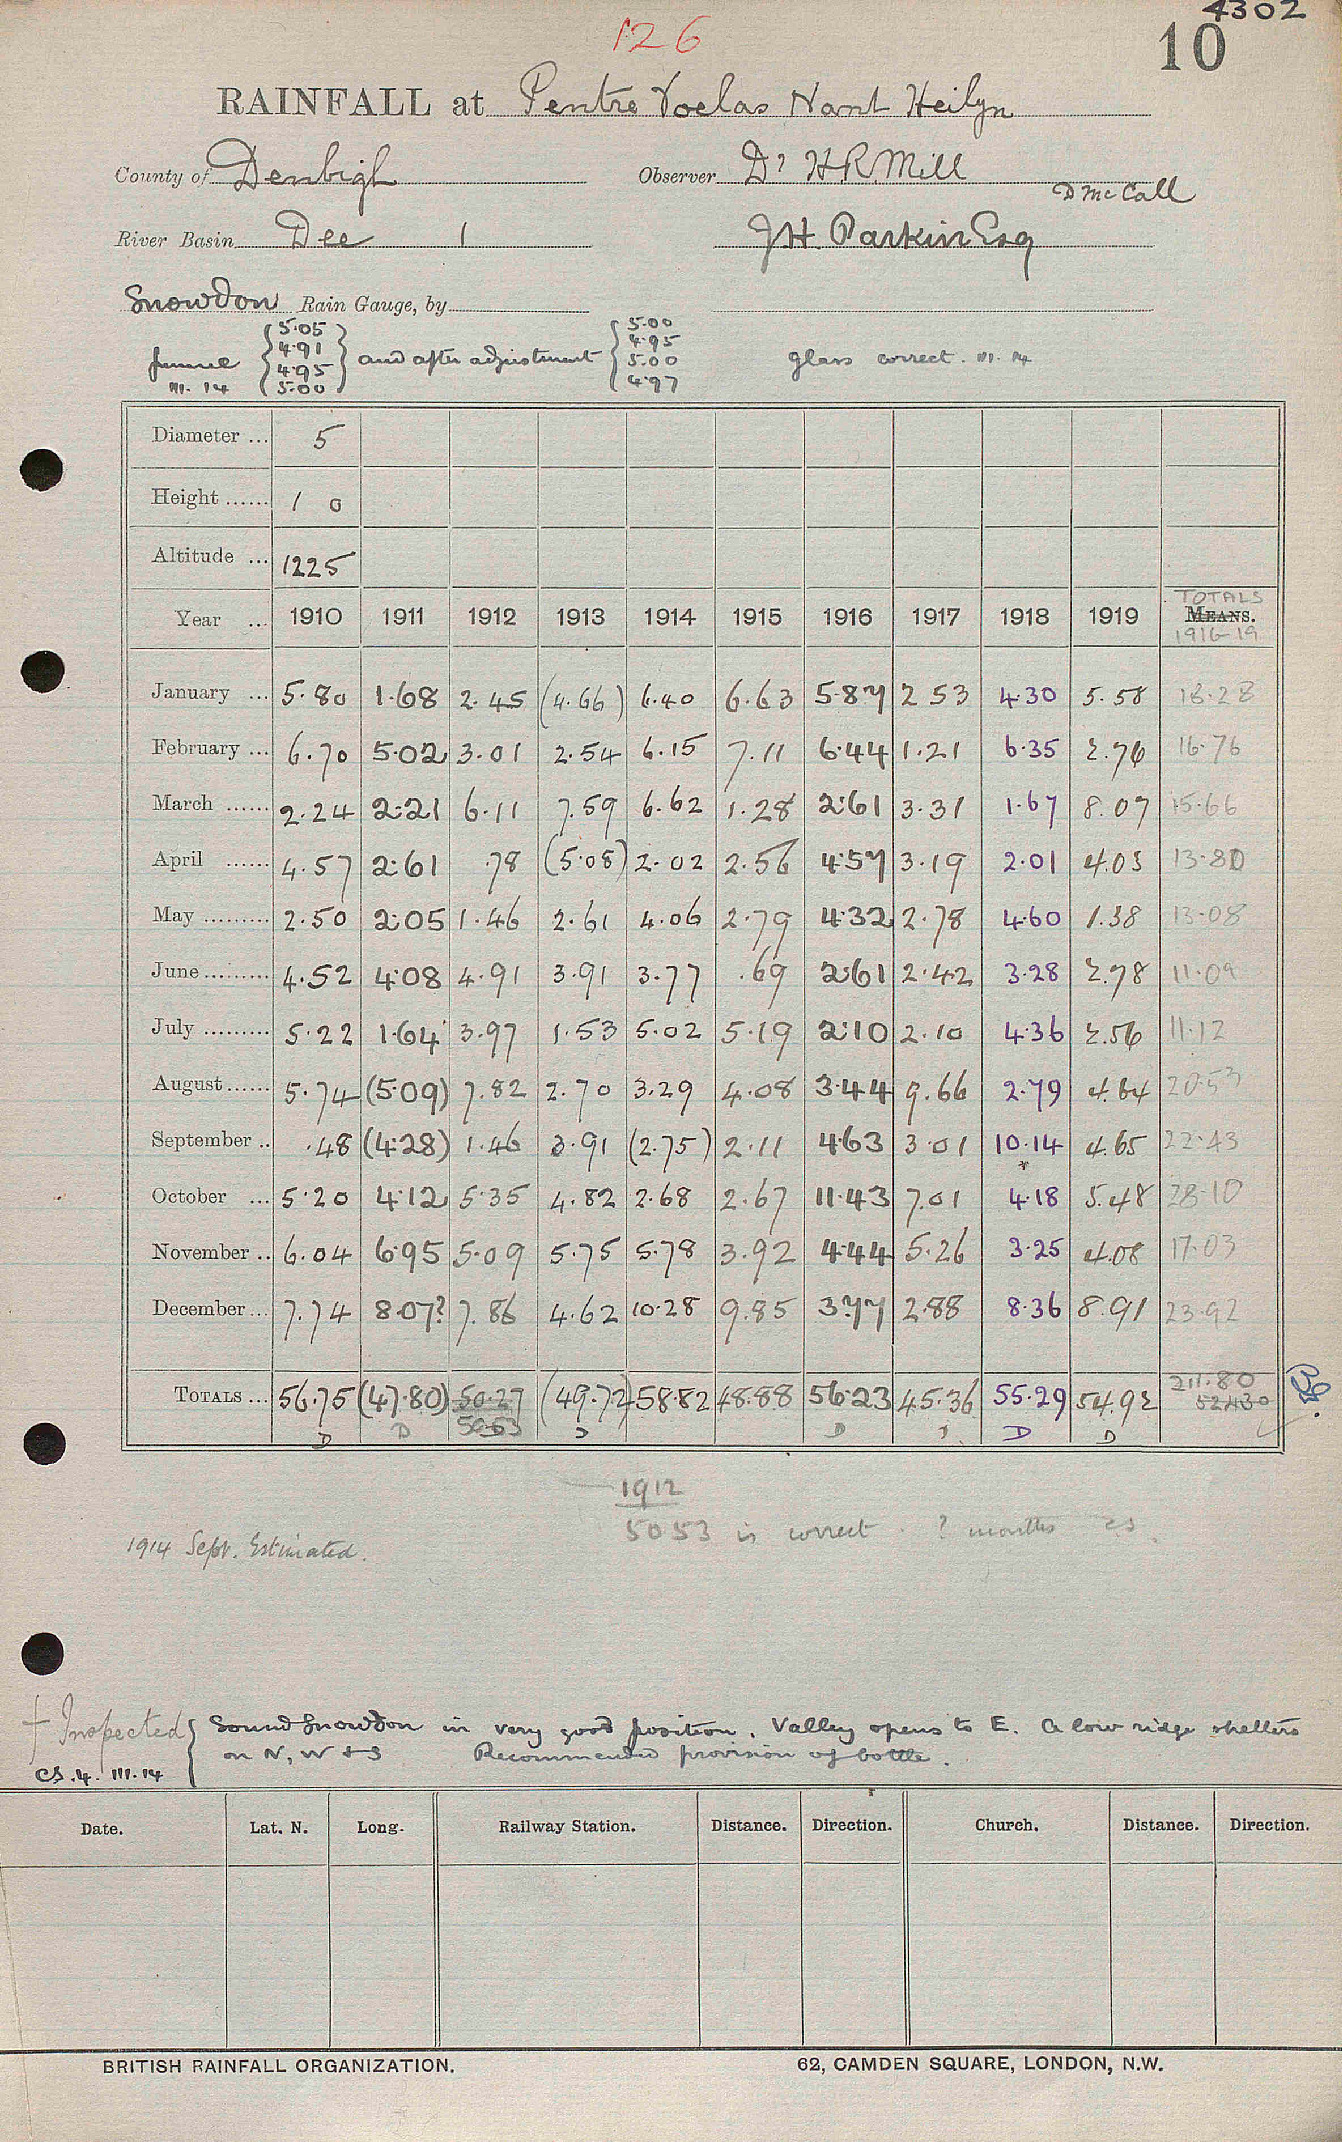 4302
126
10
RAINFALL at Pentre Voelas Nant Heilyn
County of Denbigh Observer Dr H R Mill
D McCall
River Basin Dee 1 J H. Parkin Esq
Snowdon Rain Gauge, by
funnel III. 14 { 5.05 4.91 4.95 5.00 } and after adjustment { 5.00 4.95 5.00 4.97 glass correct. III. 14
Diameter ... 5
Height ...... 1 0
Altitude ... 1225
Year ... 1910 1911 1912 1913 1914 1915 1916 1917 1918 1919 TOTALS MEANS. 1916-19
January ... 5.80 1.68 2.45 (4.66) 6.40 6.63 5.87 2.53 4.30 5.58 18.28
February ... 6.70 5.02 3.01 2.54 6.15 7.11 6.44 1.21 6.35 2.76 16.76
March ...... 2.24 2.21 6.11 7.59 6.62 1.28 2.61 3.31 1.67 8.07 15.66
April ...... 4.57 2.61 .78 (5.08) 2.02 2.56 4.57 3.19 2.01 4.03 13.80
May ......... 2.50 2.05 1.46 2.61 4.06 2.79 4.32 2.78 4.60 1.38 13.08
June ......... 4.52 4.08 4.91 3.91 3.77 .69 2.61 2.42 3.28 2.78 11.09
July ......... 5.22 1.64 3.97 1.53 5.02 5.19 2.10 2.10 4.36 2.56 11.12
August ...... 5.74 (5.09) 7.82 2.70 3.29 4.08 3.44 9.66 2.79 4.64 20.53
September .. .48 (4.28) 1.46 3.91 (2.75) 2.11 4.63 3.01 10.14 4.65 22.43
October ... 5.20 4.12 5.35 4.82 2.68 2.67 11.43 7.01 4.18 5.48 28.10
November .. 6.04 6.95 5.09 5.75 5.78 3.92 4.44 5.26 3.25 4.08 17.03
December ... 7.74 8.07? 7.86 4.62 10.28 9.85 3.77 2.88 8.36 8.91 23.92
TOTALS ... 56.75 (47.80) 50.27 (49.72) 58.82 48.88 56.23 45.36 55.29 54.92 211.80
50.53
D D D D D D
1912
50 53 is correct. ? months
1914 Sept. Estimated.
† Inspected { Sound Snowdon in very good position. Valley opens to E. A low ridge shelters
on N, W & S Recommended provision of bottle.
CS. 4. III. 14
Date. Lat. N. Long. Railway Station. Distance. Direction. Church. Distance. Direction.
BRITISH RAINFALL ORGANIZATION. 62, CAMDEN SQUARE, LONDON, N.W.